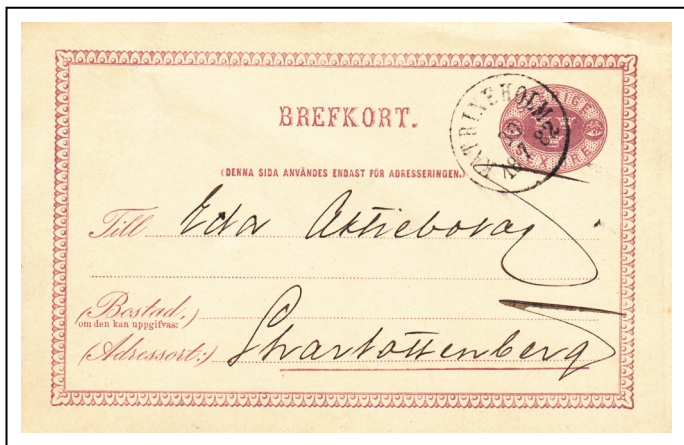 BREFKORT.
SVERIGE
SEX ÖRE
KATRINEHOLM
(DENNA SIDA ANVÄNDES ENDAST FÖR ADRESSERINGEN.)
Till Eda Aktiebolag
(Bostad,)
om den kan uppgifvas:
(Adressort:) Charlottenberg